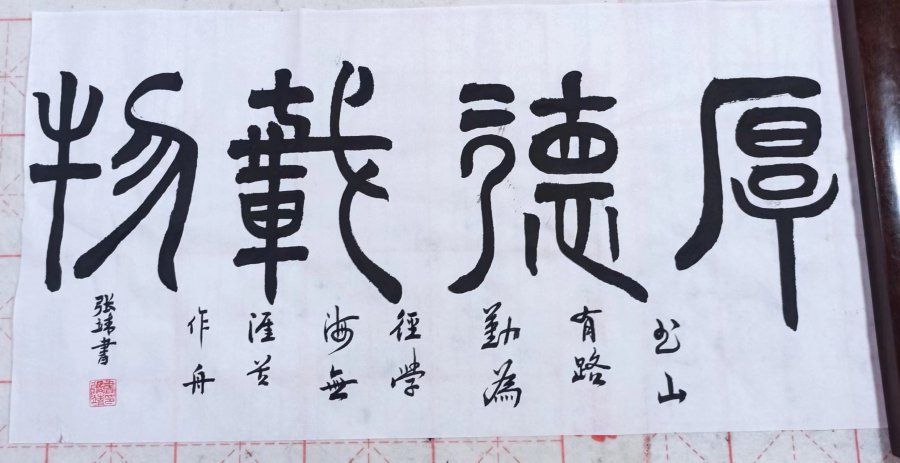 厚德載物
书山
有路
勤為
徑學
海無
涯苦
作舟
张靖書